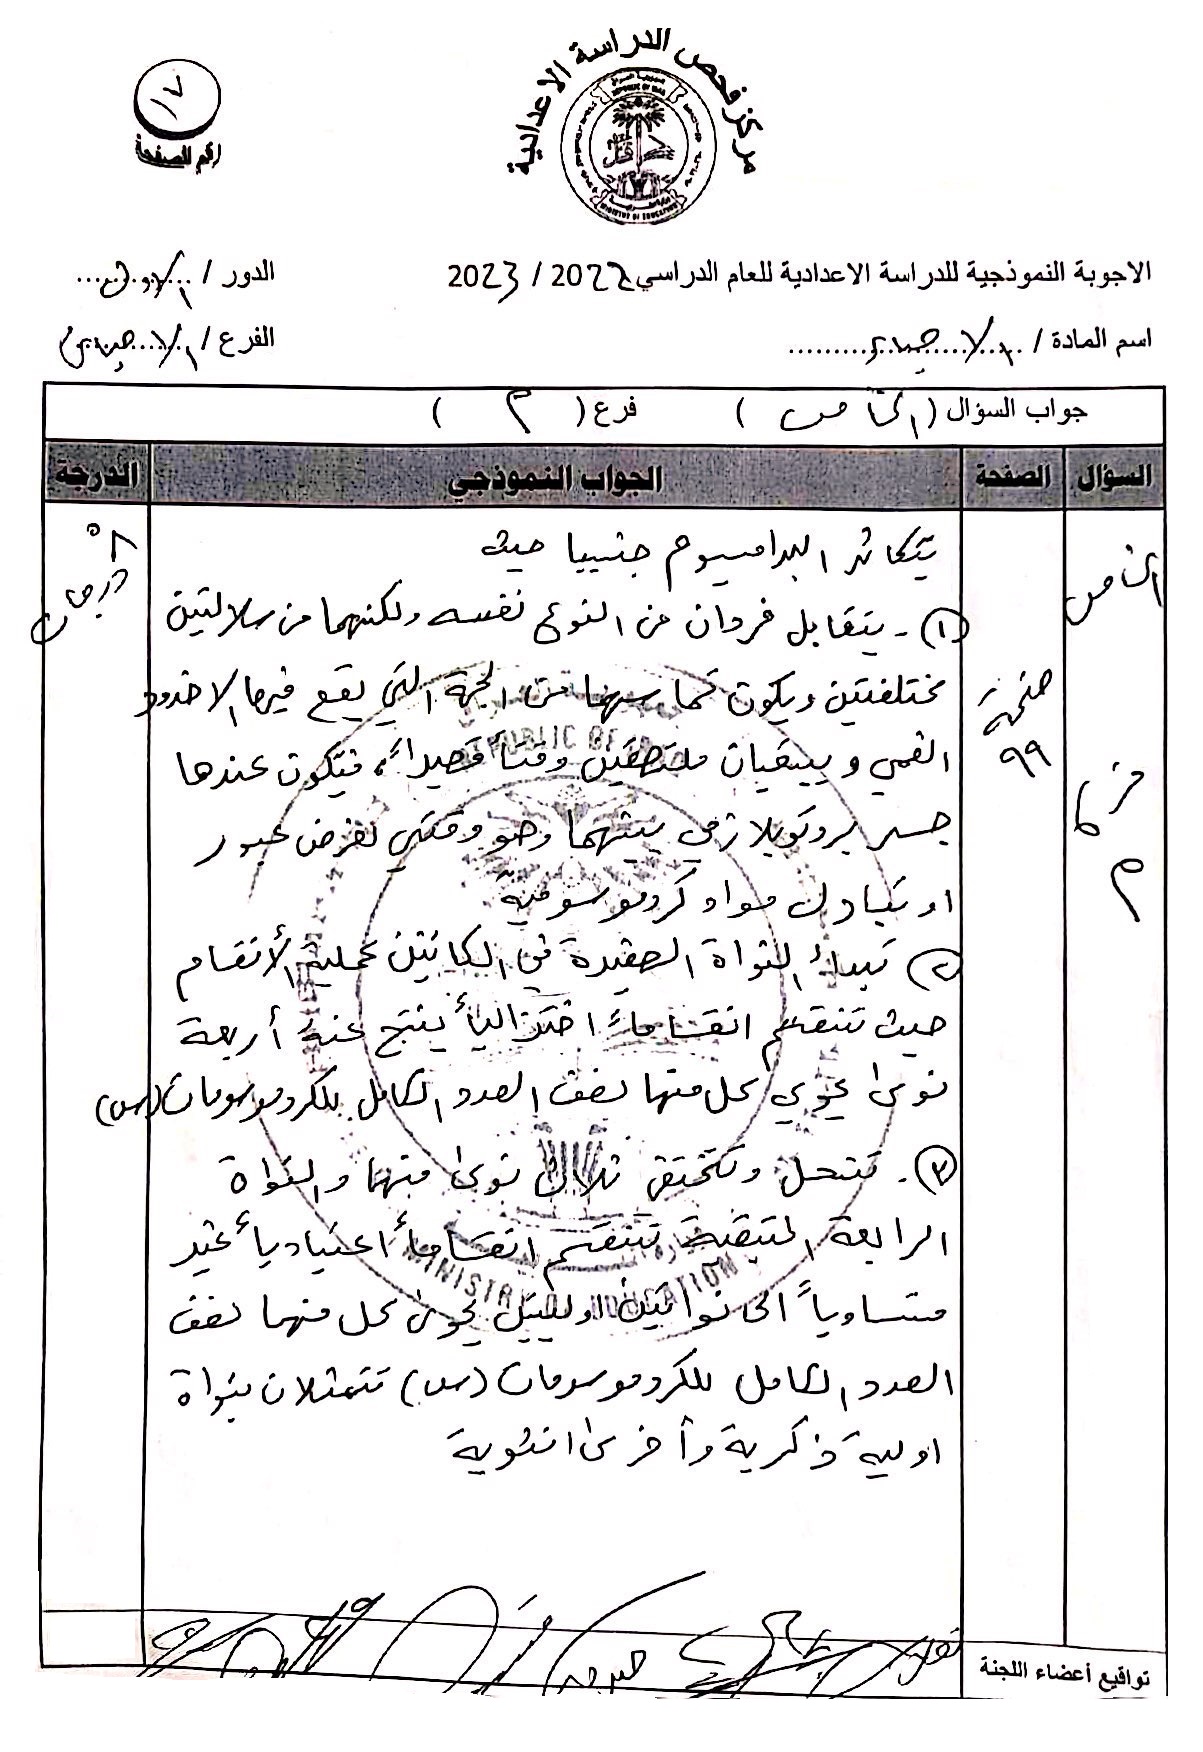 مركز فحص الدراسة الاعدادية
١٧
رقم الصفحة
الاجوبة النموذجية للدراسة الاعدادية للعام الدراسي 2022 / 2023
الدور / الاول
اسم المادة / الاحياء
الفرع / الاحيائي
جواب السؤال ( الخامس ) فرع ( م )
السؤال الصفحة الجواب النموذجي الدرجة
الخامس
فرع
م
صفحة
٩٩
٨
درجات
يتكاثر البراميسيوم جنسيا حيث
١- يتقابل فردان من النوع نفسه ولكنهما من سلالتين
مختلفتين ويكون تماسهما من الجهة التي يقع فيها الاخدود
الفمي ويبقيان ملتصقين وقتاً قصيراً، فيتكون عندها
جسر بروتوبلازمي بينهما وهو وقتي لغرض عبور
او تبادل مواد كروموسومية
٢) تبدأ النواة الصغيرة في الكائنين عملية الأنقسام
حيث تنقسم انقساماً اختزالياً ينتج عنه أربعة
نوى يحوي كل منها نصف العدد الكامل للكروموسومات (س)
٣- تنحل وتختفي ثلاث نوى منها والنواة
الرابعة المتبقية تنقسم انقساماً اعتيادياً غير
متساوياً الى نواتين اوليتين تحوى كل منهما نصف
العدد الكامل للكروموسومات (س) تتمثلان بنواة
اولية ذكرية وأخرى انثوية
تواقيع أعضاء اللجنة